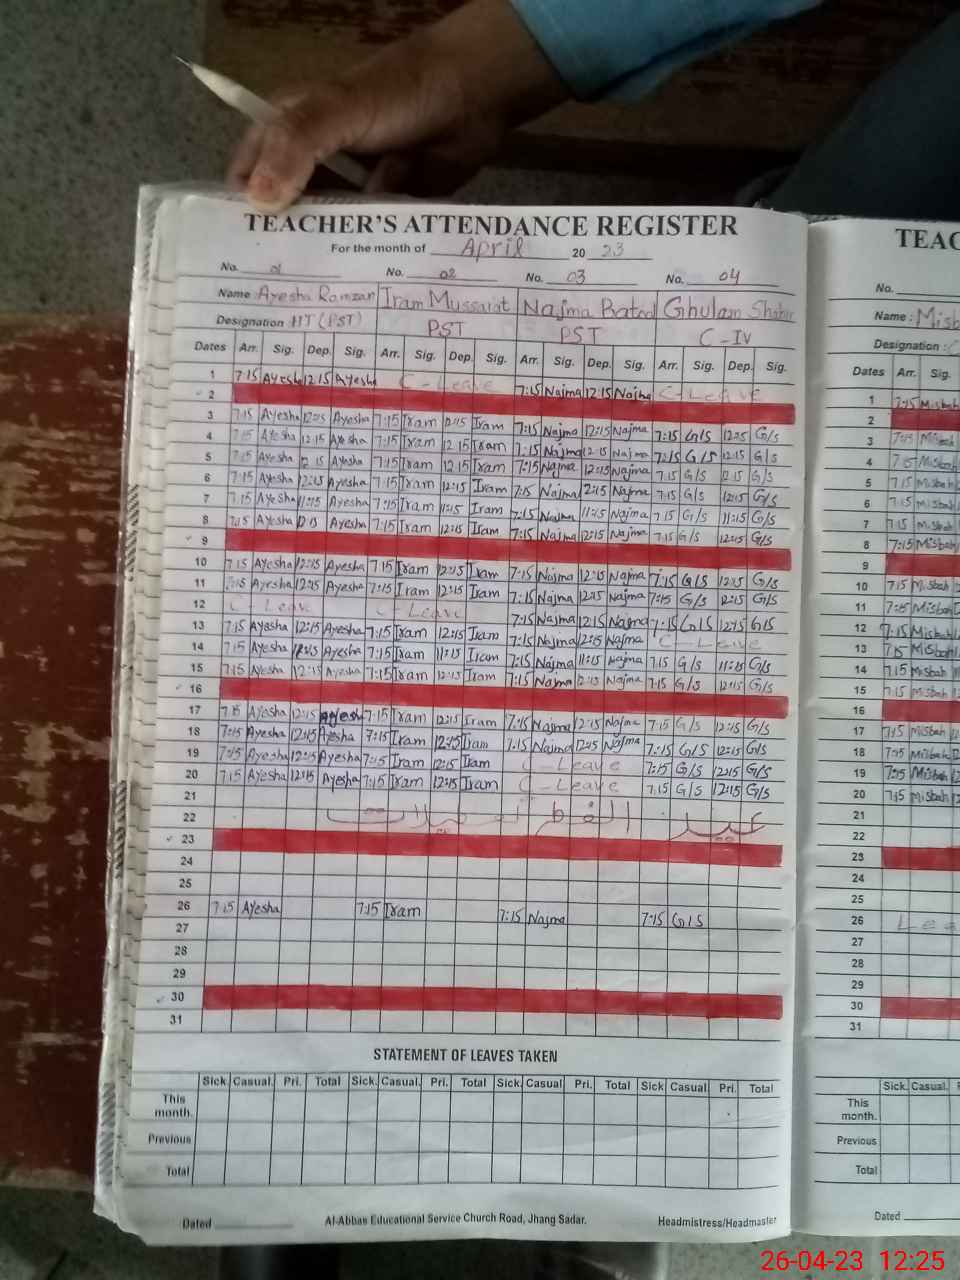 TEACHER'S ATTENDANCE REGISTER
For the month of April 20 23
No. 01 No. 02 No. 03 No. 04
Name : Ayesha Ramzan Iram Mussarat Najma Batool Ghulam Shabir
Designation HT (PST) PST PST C-IV
Dates Arr. Sig. Dep. Sig. Arr. Sig. Dep. Sig. Arr. Sig. Dep. Sig. Arr. Sig. Dep. Sig.
1 7:15 Ayesha 12:15 Ayesha C-Leave 7:15 Najma 12:15 Najma C-Leave
2
3 7:15 Ayesha 12:15 Ayesha 7:15 Iram 12:15 Iram 7:15 Najma 12:15 Najma 7:15 G/S 12:15 G/S
4 7:15 Ayesha 12:15 Ayesha 7:15 Iram 12:15 Iram 7:15 Najma 12:15 Najma 7:15 G/S 12:15 G/S
5 7:15 Ayesha 12:15 Ayesha 7:15 Iram 12:15 Iram 7:15 Najma 12:15 Najma 7:15 G/S 12:15 G/S
6 7:15 Ayesha 12:15 Ayesha 7:15 Iram 12:15 Iram 7:15 Najma 12:15 Najma 7:15 G/S 12:15 G/S
7 7:15 Ayesha 11:15 Ayesha 7:15 Iram 11:15 Iram 7:15 Najma 11:15 Najma 7:15 G/S 11:15 G/S
8 7:15 Ayesha 12:15 Ayesha 7:15 Iram 12:15 Iram 7:15 Najma 12:15 Najma 7:15 G/S 12:15 G/S
9
10 7:15 Ayesha 12:15 Ayesha 7:15 Iram 12:15 Iram 7:15 Najma 12:15 Najma 7:15 G/S 12:15 G/S
11 7:15 Ayesha 12:15 Ayesha 7:15 Iram 12:15 Iram 7:15 Najma 12:15 Najma 7:15 G/S 12:15 G/S
12 C-Leave C-Leave 7:15 Najma 12:15 Najma 7:15 G/S 12:15 G/S
13 7:15 Ayesha 12:15 Ayesha 7:15 Iram 12:15 Iram 7:15 Najma 12:15 Najma C-Leave
14 7:15 Ayesha 11:15 Ayesha 7:15 Iram 11:15 Iram 7:15 Najma 11:15 Najma 7:15 G/S 11:15 G/S
15 7:15 Ayesha 12:15 Ayesha 7:15 Iram 12:15 Iram 7:15 Najma 12:15 Najma 7:15 G/S 12:15 G/S
16
17 7:15 Ayesha 12:15 Ayesha 7:15 Iram 12:15 Iram 7:15 Najma 12:15 Najma 7:15 G/S 12:15 G/S
18 7:15 Ayesha 12:15 Ayesha 7:15 Iram 12:15 Iram 7:15 Najma 12:15 Najma 7:15 G/S 12:15 G/S
19 7:15 Ayesha 12:15 Ayesha 7:15 Iram 12:15 Iram C-Leave 7:15 G/S 12:15 G/S
20 7:15 Ayesha 12:15 Ayesha 7:15 Iram 12:15 Iram C-Leave 7:15 G/S 12:15 G/S
21
22 عید الفطر تعطیلات
23
24
25
26 7:15 Ayesha 7:15 Iram 7:15 Najma 7:15 G/S
27
28
29
30
31
STATEMENT OF LEAVES TAKEN
Sick. Casual. Pri. Total Sick. Casual. Pri. Total Sick. Casual Pri. Total Sick. Casual. Pri. Total
This month.
Previous
Total
Dated Al-Abbas Educational Service Church Road, Jhang Sadar. Headmistress/Headmaster
TEAC
No.
Name : Misb
Designation :
Dates Arr. Sig.
1 7:15 Misbah
2
3 7:15 Misbah
4 7:15 Misbah
5 7:15 Misbah
6 7:15 Misbah
7 7:15 Misbah
8 7:15 Misbah
9
10 7:15 Misbah
11 7:15 Misbah
12 7:15 Misbah
13 7:15 Misbah
14 7:15 Misbah
15 7:15 Misbah
16
17 7:15 Misbah
18 7:15 Misbah
19 7:15 Misbah
20 7:15 Misbah
21
22
23
24
25
26 Lea
27
28
29
30
31
Sick. Casual.
This month.
Previous
Total
Dated
26-04-23 12:25